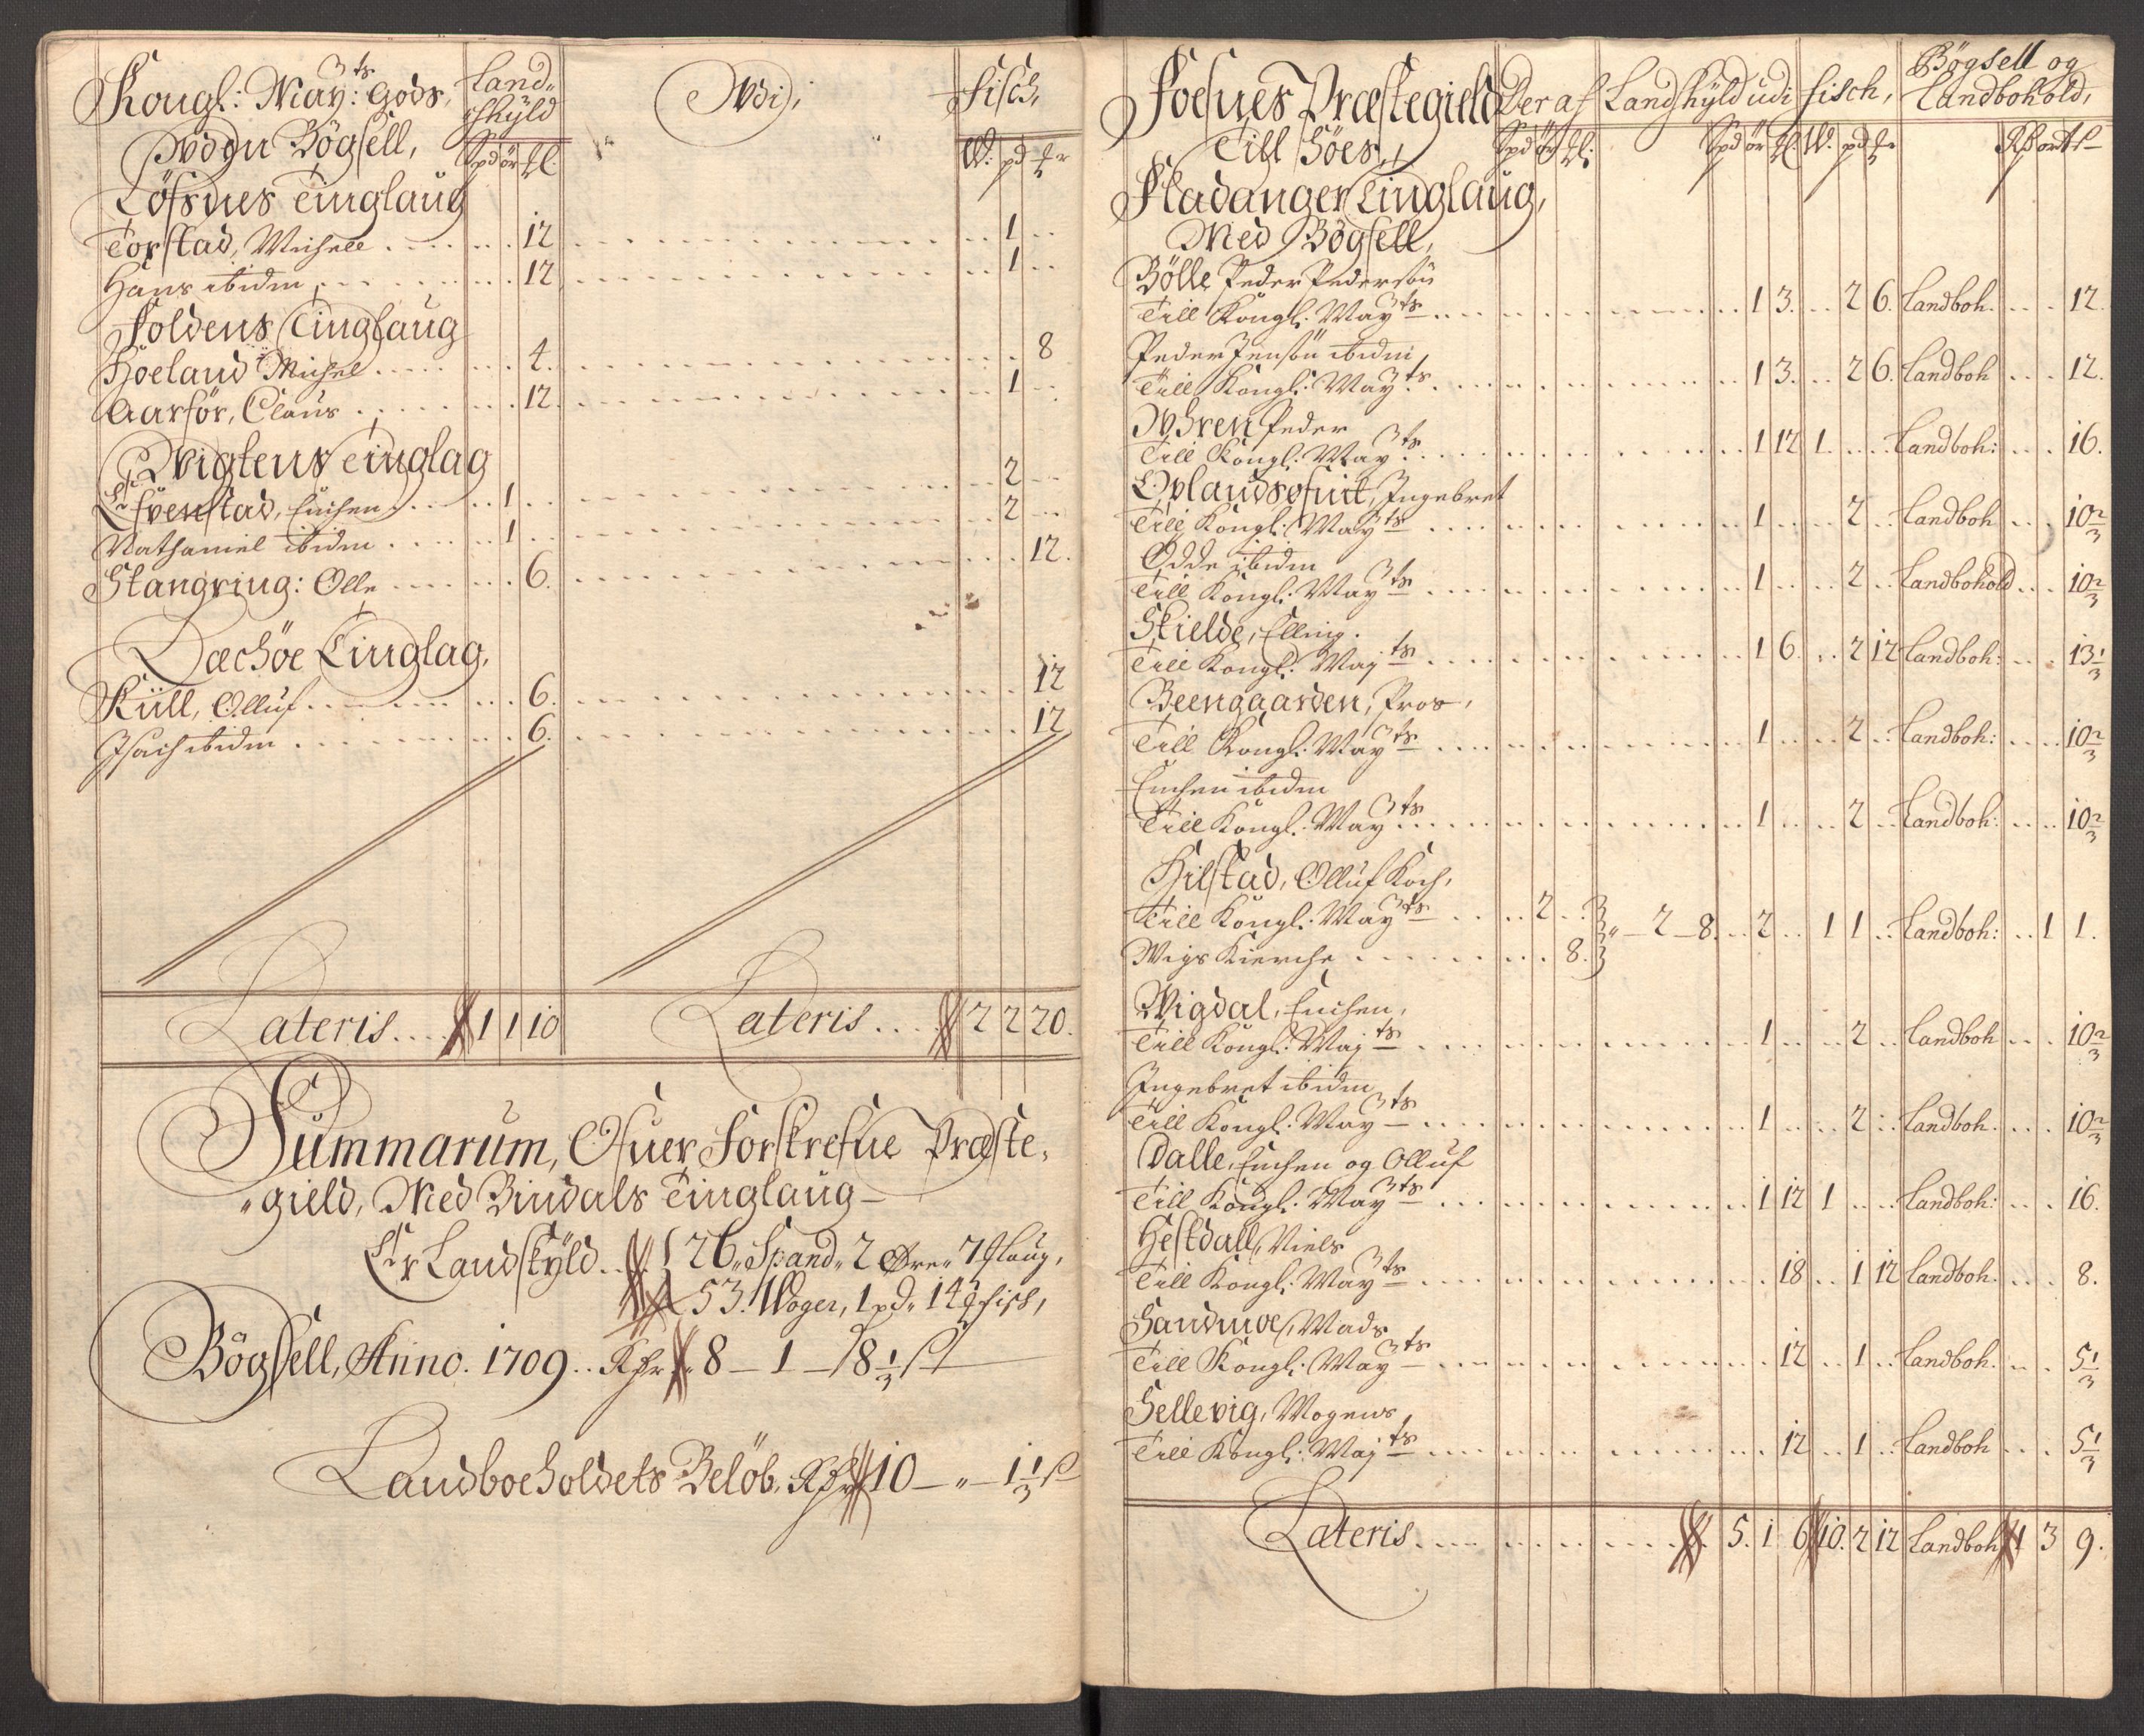 Kongl: May:ts Gods, Land-
schÿld Udi, Fisch,
Uden Bögsell, Spd ör ℔: W: pd ℔r
Löfsnes Tinglaug
Torstad, Michell . . . . 12 . . . . 1 . .
Hans ibidm . . . . 12 . . . . 1 . .
Foldens Tinglaug
Höeland Michel . . . . 4 . . . . 8
Aarför, Claus . . . . 12 . . . . 1 . .
Wigtens Tinglag
Efvenstad, Erichsen . . . . 1 . . . . 2 . .
Nathaniel ibidm . . . . 1 . . . . 2 . .
Stangring: Olle . . . . 6 . . . . 12.
Næröe Tinglag,
Küll, Olluf . . . . 6 . . . . 12
Isach ibidm . . . . 6. . . . 12
Lateris . . . . 1 1 10 Lateris . . . . 2 2 20.
Summarum, Ofuer Forskrefne Præste-
gield, Med Bindals Tinglaug
Er Landskÿld . . 26 Spand 2 Øre 7
53. Woger, 1 pd. 14 fisch,
Bögsell, Anno. 1709 . . Rdr 8 – 1 – 8 1/3 s
Landboeholdets Belöb, Rdr 10 – " – 1 1/3 s
Foesnes Præstegield Deraf Landschÿld udi fisch, Bögsell og
Landbohold,
Till Söes, Spd ör ℔: Spd ör ℔: W: pd ℔r Rdr ort s
Fladanger Tinglaug,
Med Bögsell,
Bölle Peder Pedersön
Till Kongl: Mayts . . . . 1 3 . . 2 6. Landboh. . . . 12.
Peder Jensön ibidm
Till Kongl: Mayts . . . . 1 3. . . 2 6. Landboh . . . 12.
Uhren Peder
Till Kongl: Mayts . . . . 1 12 1 . . . Landboh: . . . 16.
Oplandsofuit, Ingebret
Till Kongl: Mayts . . . . 1 . . . 2 . . Landboh . . . 10 2/3
Odde ibidm
Till Kongl: Mayts . . . . 1 . . . 2 . . Landbohold . . . 10 2/3
Skielde, Elling.
Till Kongl: Majts . . . . 1 6. . . 2 12 Landboh: . . . 13 1/3
Beengaarden, Pros,
Till Kongl: Mayts . . . . 1 . . . 2 . . Landboh: . . . 10 2/3
Erichen ibidm
Till Kongl: Mayts . . . . 1 . . . 2 . . Landboh: . . . 10 2/3
Hilstad, Olluf Koch,
Till Kongl: Mayts . . . . 2 . . " – 2 – 8. . . 2 . . 1 1 . . Landboh: . . 1 1.
Wigs Kierche . . . . 8.
Wigdal, Erichen,
Till Kongl: Majts . . . . 1 . . . 2 . . Landboh . . . 10 2/3
Ingebret ibidm
Till Kongl: Mayts . . . . 1 . . . 2 . . Landboh. . . . 10 2/3
Dalle, Erichen og Olluf
Till Kongl: Mayts . . . . 1 12 1 . . . Landboh: . . . 16.
Hestdall, Niels
Till Kongl: Mayts . . . . 18 . . 1 12 Landboh. . . . 8.
Sandmoe, Mads
Till Kongl: Mayts . . . . 12 . . 1 . . Landboh. . . . 5 1/3
Sellevig, Mogens
Till Kongl: Majts . . . . 12 . . 1 . . Landboh . . . 5 1/3
Lateris . . . . 5. 1 6 10. 2 12 Landboh 1 3 9.